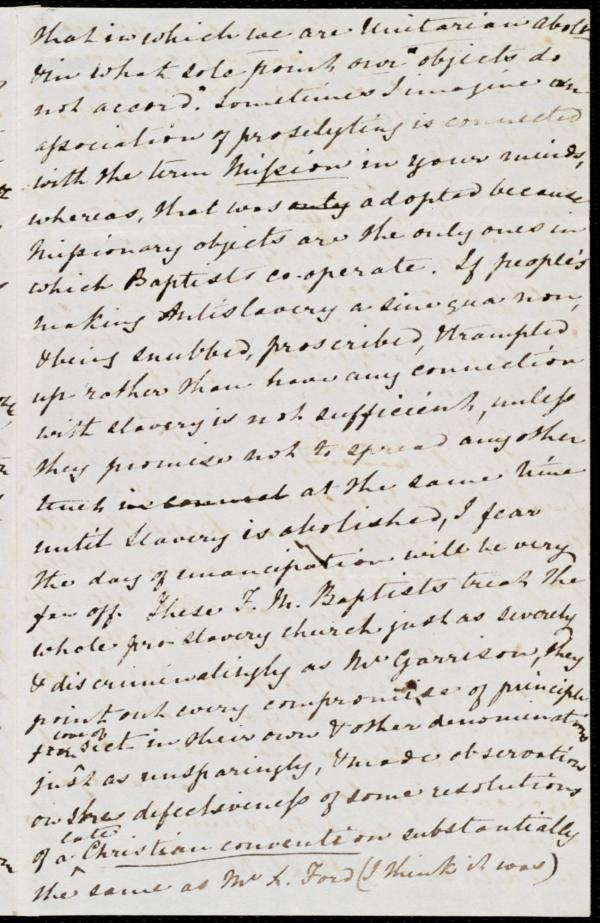 that in which we are Unitarian abol
& in what sole point our "objects do
not accord". Sometimes I imagine an
association of proselyting is connected
with the term Mission in your minds,
whereas, that was only adopted because
Missionary objects are the only ones in
which Baptists co-operate. If people's
making Antislavery a sine qua non,
& being snubbed, proscribed, & trampled
up rather than have any connection
with slavery is not sufficient, unless
they promise not to spread any other
truth at the same time
until Slavery is abolished, I fear
the day of emancipation will be very
far off. These F. M. Baptists treat the
whole pro-slavery church just as severely
& discriminatingly as Mr Garrison, they
point out every compromise of principle
some of
sect in their own & other denominations
just as unsparingly, & made observation
on the defectiveness of some resolutions
late
of a Christian convention substantially
the same as Mr L. Ford (I think it was)